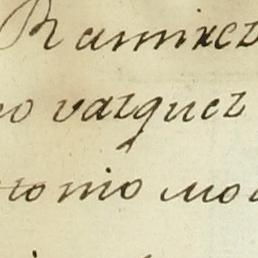 Ramirez
o vazquez
tonio Mo